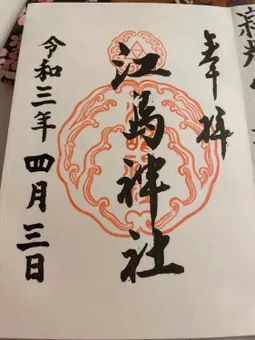 奉拝
江島神社
令和三年四月三日